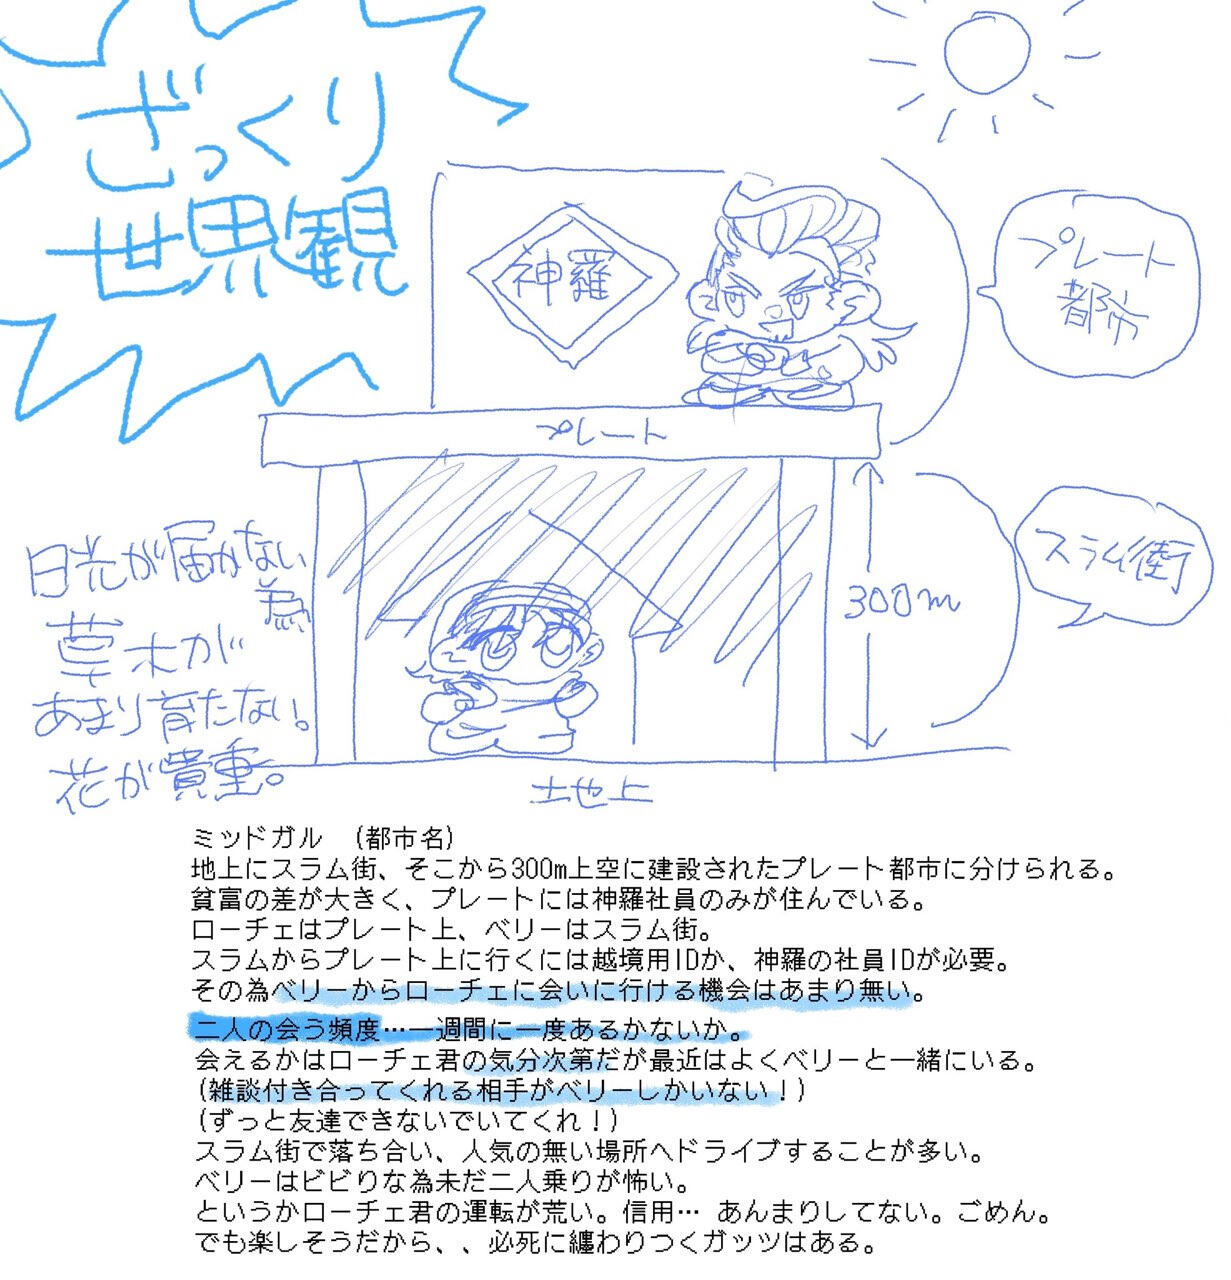 ざっくり
世界観
神羅
プレート
都市
プレート
スラム街
300m
日光が届かない
為
草木が
あまり育たない。
花が貴重。
土地上
ミッドガル （都市名）
地上にスラム街、そこから300m上空に建設されたプレート都市に分けられる。
貧富の差が大きく、プレートには神羅社員のみが住んでいる。
ローチェはプレート上、ベリーはスラム街。
スラムからプレート上に行くには越境用IDか、神羅の社員IDが必要。
その為ベリーからローチェに会いに行ける機会はあまり無い。
二人の会う頻度…一週間に一度あるかないか。
会えるかはローチェ君の気分次第だが最近はよくベリーと一緒にいる。
（雑談付き合ってくれる相手がベリーしかいない！）
（ずっと友達できないでいてくれ！）
スラム街で落ち合い、人気の無い場所へドライブすることが多い。
ベリーはビビりな為未だ二人乗りが怖い。
というかローチェ君の運転が荒い。信用… あんまりしてない。ごめん。
でも楽しそうだから、、必死に纏わりつくガッツはある。